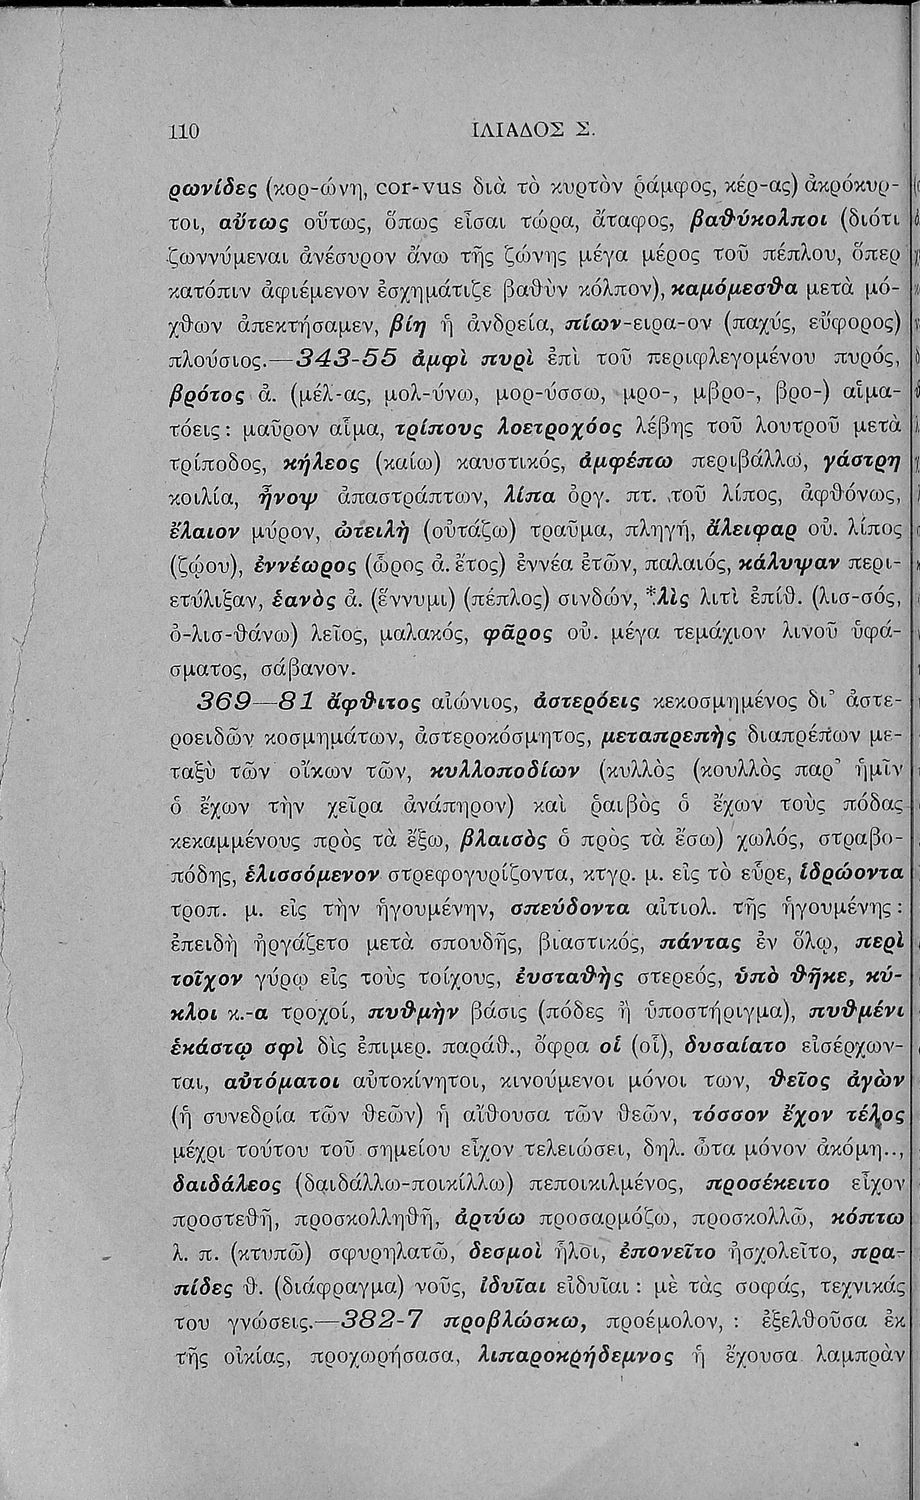 110 ΙΛΙΑΔΟΣ Σ.
ρωνίδες (κορ-ώνη, cor-vus διὰ τὸ κυρτὸν ῥάμφος, κέρ-ας) ἀκρόκυρ-
τοι, αὔτως οὕτως, ὅπως εἶσαι τώρα, ἄταφος, βαθύκολποι (διότι
ζωννύμεναι ἀνέσυρον ἄνω τῆς ζώνης μέγα μέρος τοῦ πέπλου, ὅπερ
κατόπιν ἀφιέμενον ἐσχημάτιζε βαθὺν κόλπον), καμόμεσθα μετὰ μό-
χθων ἀπεκτήσαμεν, βίη ἡ ἀνδρεία, πίων-ειρα-ον (παχύς, εὔφορος)
πλούσιος.—343-55 ἀμφὶ πυρὶ ἐπὶ τοῦ περιφλεγομένου πυρός,
βρότος ἀ. (μέλ-ας, μολ-ύνω, μορ-ύσσω, μρο-, μβρο-, βρο-) αἱμα-
τόεις: μαῦρον αἷμα, τρίπους λοετροχόος λέβης τοῦ λουτροῦ μετὰ
τρίποδος, κήλεος (καίω) καυστικός, ἀμφέπω περιβάλλω, γάστρη
κοιλία, ἦνοψ ἀπαστράπτων, λίπα ὀργ. πτ. τοῦ λίπος, ἀφθόνως,
ἔλαιον μύρον, ὠτειλὴ (οὐτάζω) τραῦμα, πληγή, ἄλειφαρ οὐ. λίπος
(ζῴου), ἐννέωρος (ὧρος ἀ. ἔτος) ἐννέα ἐτῶν, παλαιός, κάλυψαν περι-
ετύλιξαν, ἑανὸς ἀ. (ἕννυμι) (πέπλος) σινδών, *λὶς λιτὶ ἐπίθ. (λισ-σός,
ὀ-λισ-θάνω) λεῖος, μαλακός, φᾶρος οὐ. μέγα τεμάχιον λινοῦ ὑφά-
σματος, σάβανον.
369—81 ἄφθιτος αἰώνιος, ἀστερόεις κεκοσμημένος δι᾽ ἀστε-
ροειδῶν κοσμημάτων, ἀστεροκόσμητος, μεταπρεπὴς διαπρέπων με-
ταξὺ τῶν οἴκων τῶν, κυλλοποδίων (κυλλὸς (κουλλὸς παρ᾽ ἡμῖν
ὁ ἔχων τὴν χεῖρα ἀνάπηρον) καὶ ῥαιβὸς ὁ ἔχων τοὺς πόδας
κεκαμμένους πρὸς τὰ ἔξω, βλαισὸς ὁ πρὸς τὰ ἔσω) χωλός, στραβο-
πόδης, ἑλισσόμενον στρεφογυρίζοντα, κτγρ. μ. εἰς τὸ εὗρε, ἱδρώοντα
τροπ. μ. εἰς τὴν ἡγουμένην, σπεύδοντα αἰτιολ. τῆς ἡγουμένης:
ἐπειδὴ ἠργάζετο μετὰ σπουδῆς, βιαστικός, πάντας ἐν ὅλῳ, περὶ
τοῖχον γύρῳ εἰς τοὺς τοίχους, ἐυσταθὴς στερεός, ὑπὸ θῆκε, κύ-
κλοι κ.-α τροχοί, πυθμὴν βάσις (πόδες ἢ ὑποστήριγμα), πυθμένι
ἑκάστῳ σφὶ δὶς ἐπιμερ. παράθ., ὄφρα οἱ (οἷ), δυσαίατο εἰσέρχων-
ται, αὐτόματοι αὐτοκίνητοι, κινούμενοι μόνοι των, θεῖος ἀγὼν
(ἡ συνεδρία τῶν θεῶν) ἡ αἴθουσα τῶν θεῶν, τόσσον ἔχον τέλος
μέχρι τούτου τοῦ σημείου εἶχον τελειώσει, δηλ. ὦτα μόνον ἀκόμη..,
δαιδάλεος (δαιδάλλω-ποικίλλω) πεποικιλμένος, προσέκειτο εἶχον
προστεθῆ, προσκολληθῆ, ἀρτύω προσαρμόζω, προσκολλῶ, κόπτω
λ. π. (κτυπῶ) σφυρηλατῶ, δεσμοὶ ἧλοι, ἐπονεῖτο ἠσχολεῖτο, πρα-
πίδες θ. (διάφραγμα) νοῦς, ἰδυῖαι εἰδυῖαι: μὲ τὰς σοφάς, τεχνικάς
του γνώσεις.—382-7 προβλώσκω, προέμολον, : ἐξελθοῦσα ἐκ
τῆς οἰκίας, προχωρήσασα, λιπαροκρήδεμνος ἡ ἔχουσα λαμπρὰν